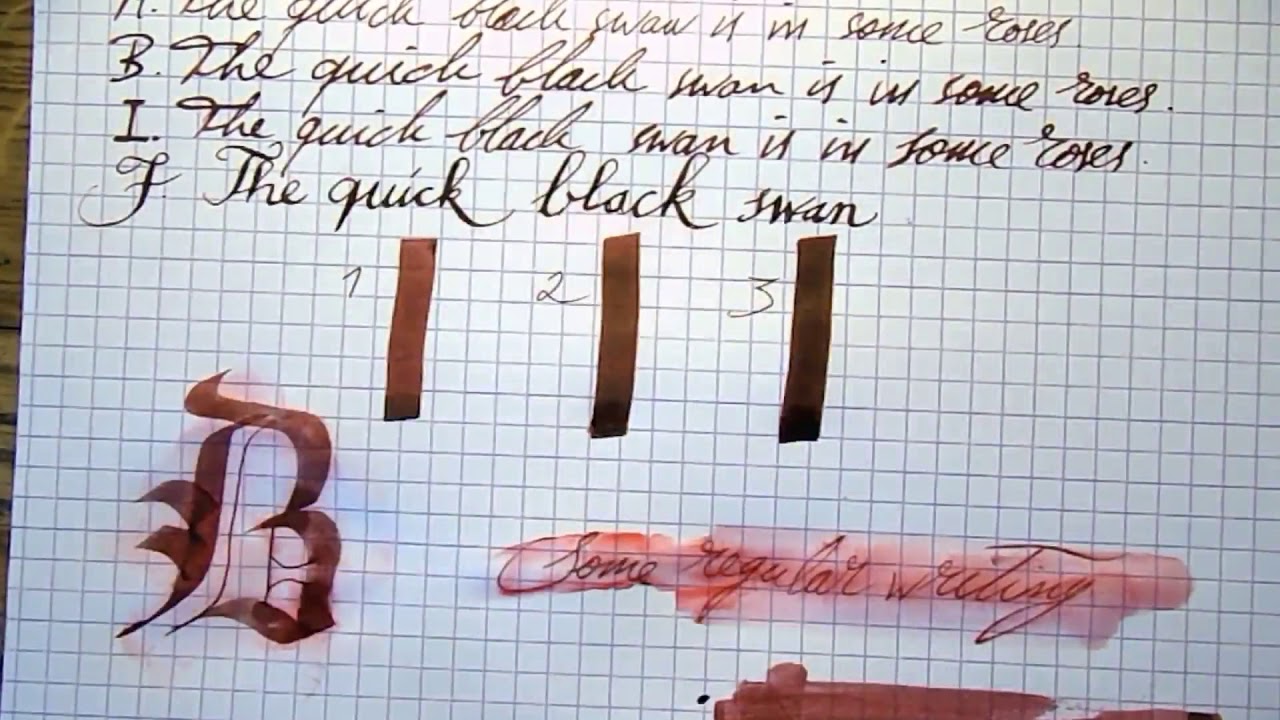 The quick black swan is in some roses.
B. The quick black swan is in some roses.
I. The quick black swan is in some roses.
F. The quick black swan
1 2 3
B
Some regular writing